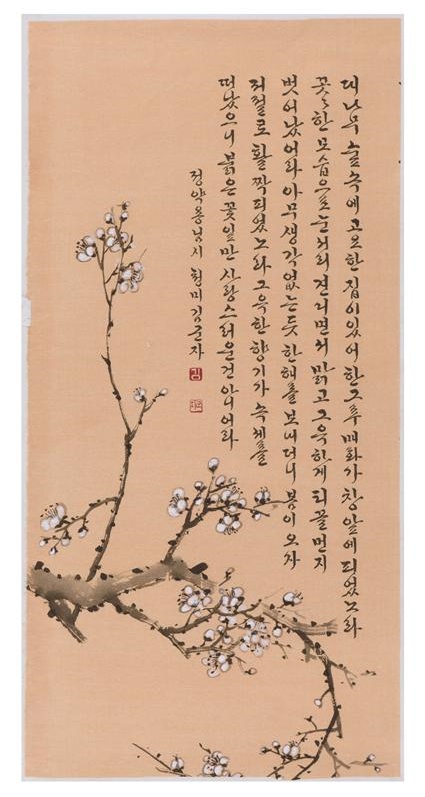 대나무 숲 속에 고요한 집이 있어 한 그루 매화가 창 앞에 피었노라
꼿꼿한 모습으로 눈서리 견디면서 맑고 그윽하게 티끌 먼지
벗어났어라 아무 생각 없는듯 한 해를 보내더니 봄이 오자
저절로 활짝 피었노라 그윽한 향기가 속세를
떠났으니 붉은 꽃잎만 사랑스러운건 아니어라
정약용님 시 김군자